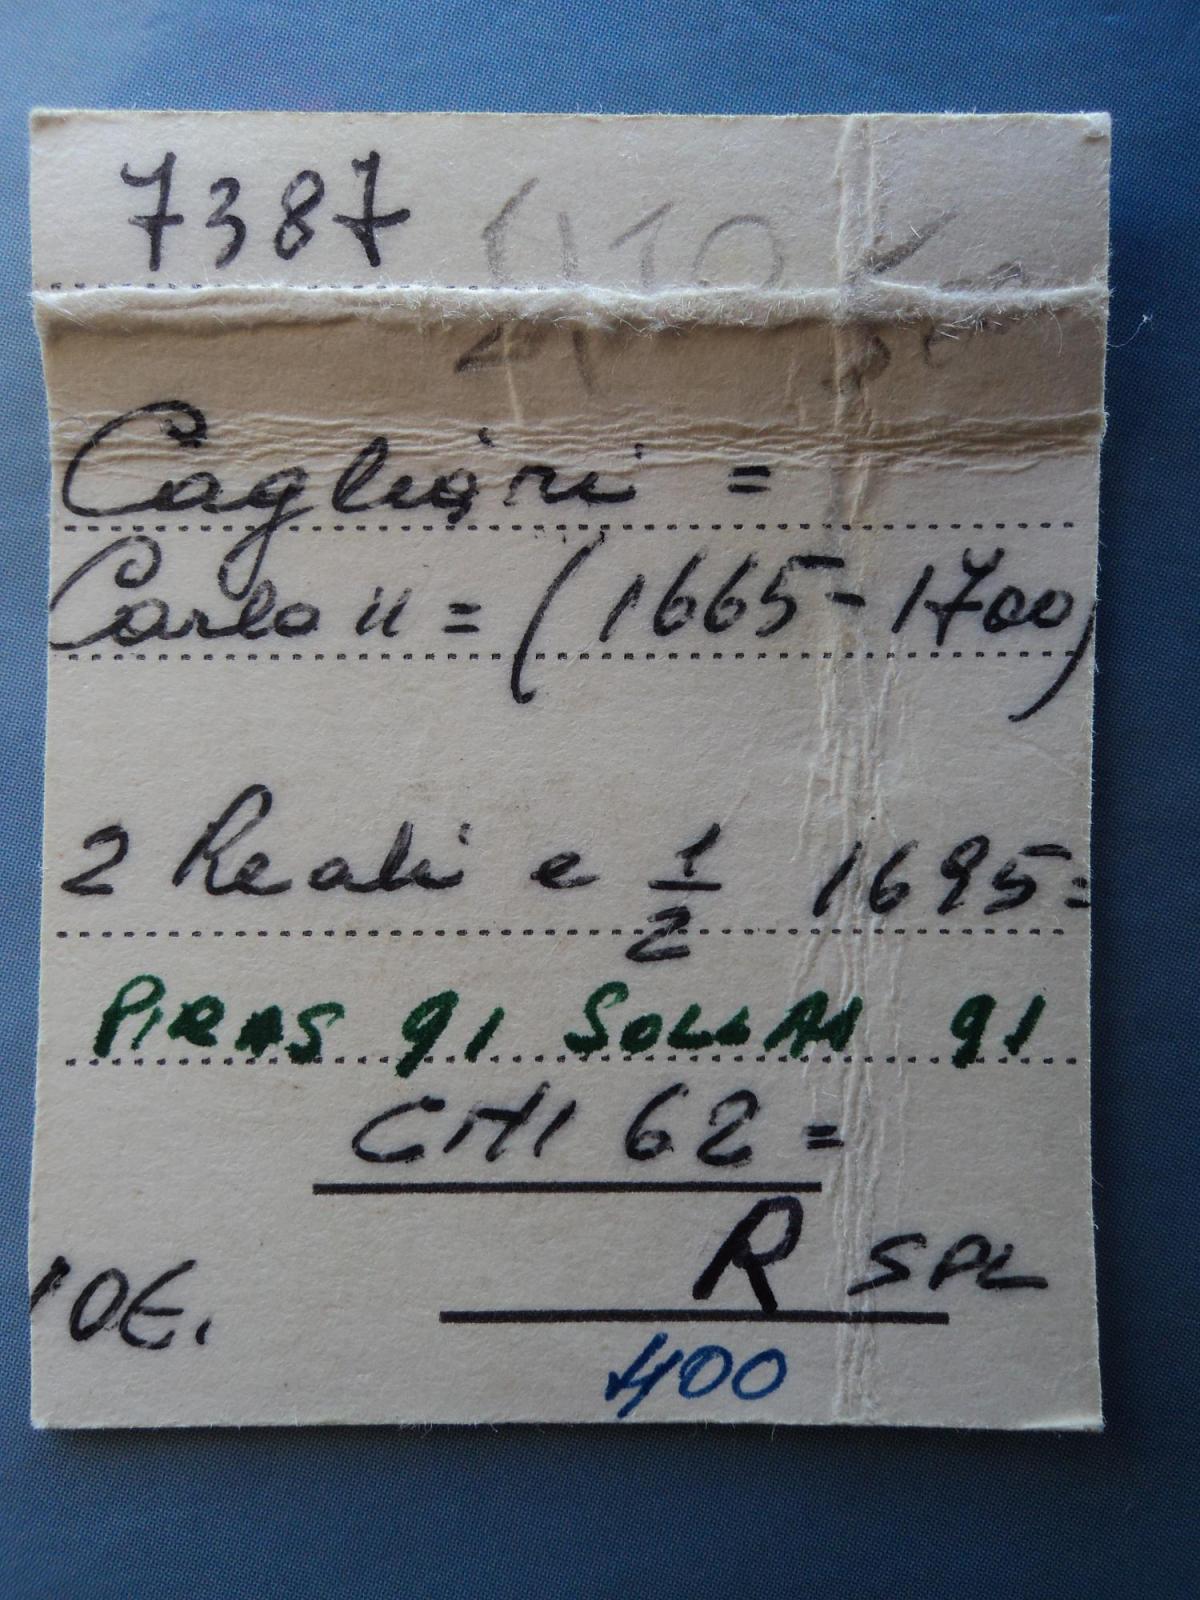 7387
Cagliari =
Carlo II = (1665-1700)
2 Reali e 1/2 1695=
PIRAS 91 SOLLAI 91
CNI 62 =
R SPL
10€.
400